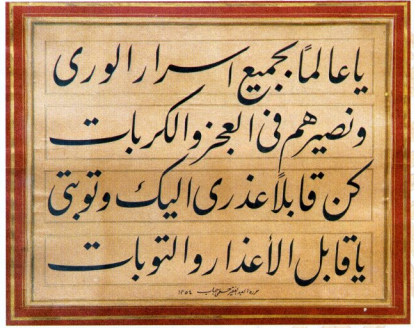 يا عالمًا بجميع اسرار الورى
ونصيرهم فى العجز والكربات
كن قابلاً عذرى اليك وتوبتى
يا قابل الأعذار والتوبات